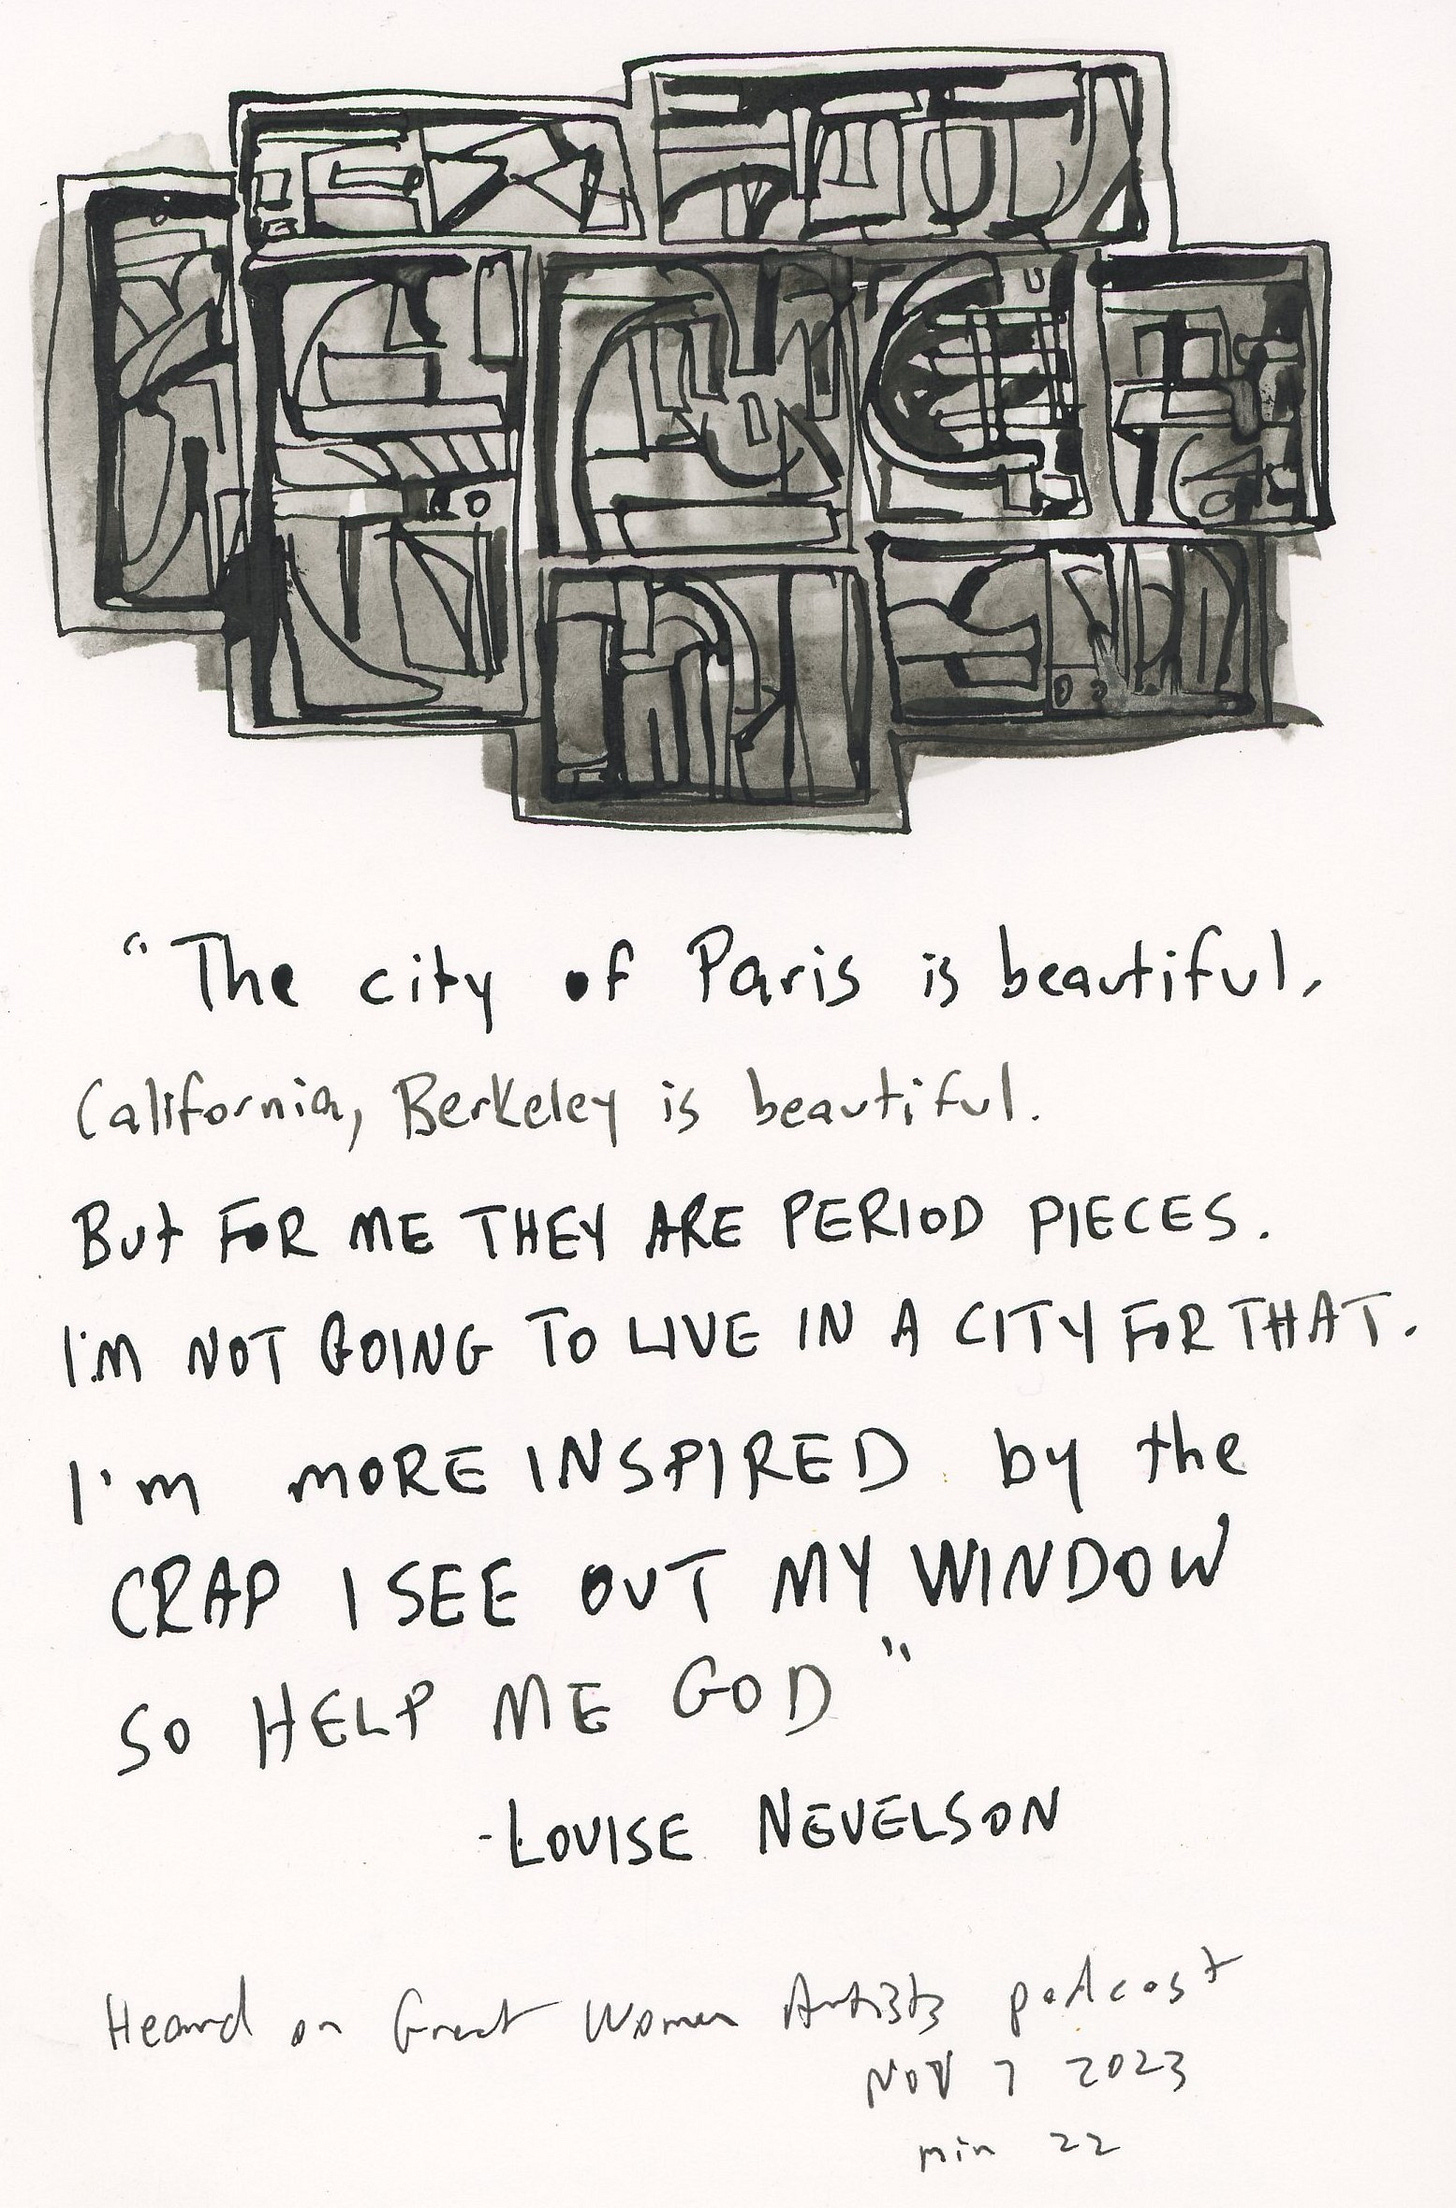 "The city of Paris is beautiful,
California, Berkeley is beautiful.
But FOR ME THEY ARE PERIOD PIECES.
I'M NOT GOING TO LIVE IN A CITY FOR THAT.
I'm MORE INSPIRED by the
CRAP I SEE OUT MY WINDOW
SO HELP ME GOD"
-LOUISE NEVELSON
Heard on Great Women Artists podcast
NOV 7 2023
min 22